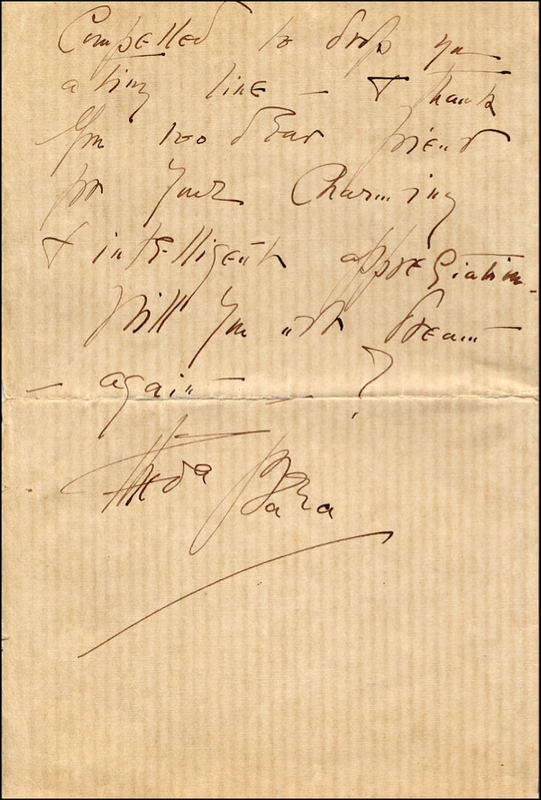 Compelled to drop you
a tiny line – & thank
you too dear friend
for your charming
& intelligent appreciation.
Will you not dream –
– again – – ?
Theda Bara